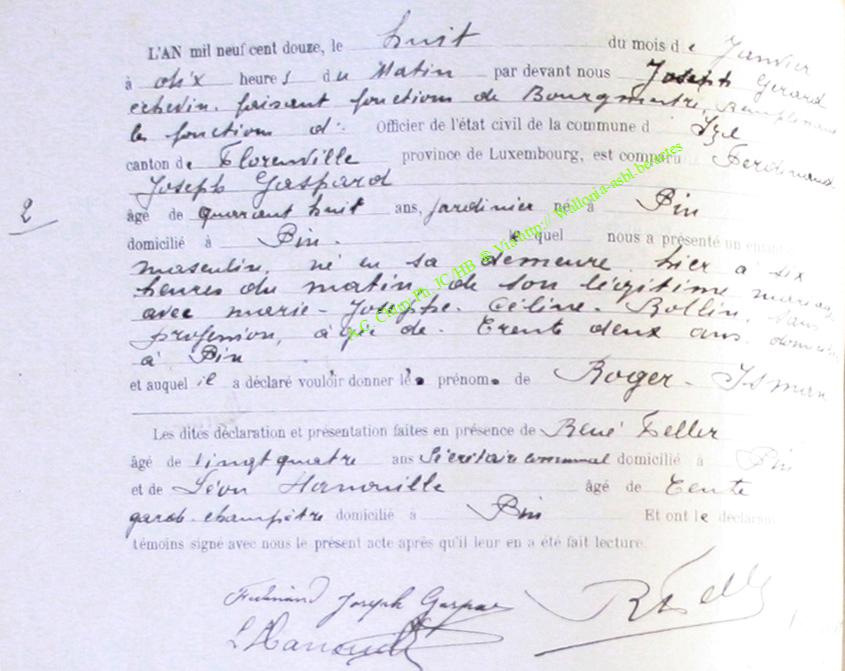 L'AN mil neuf cent douze, le huit du mois de Janvier
à dix heures du Matin par devant nous Joseph Gerard
échevin, faisant fonctions de Bourgmestre, remplissant
les fonctions d' Officier de l'état civil de la commune d Izel
canton de Florenville province de Luxembourg, est comparu Ferdinand
Joseph Gaspard
2
âgé de quarant huit ans, jardinier né à Pin
domicilié à Pin. lequel nous a présenté un enfant
masculin, né en sa demeure, hier à six
heures du matin, de son légitime mariage
avec marie-Josephe-Céline-Rollin, sans
profession, âgée de. Trente deux ans, domiciliée
à Pin
et auquel il a déclaré vouloir donner le prénom de Roger-Isman
Les dites déclaration et présentation faites en présence de René Feller
âgé de vingt quatre ans Secrétaire communal domicilié à Pin
et de Léon Hanouille âgé de Trente
garde-champêtre domicilié à Pin Et ont le déclarant
témoins signé avec nous le présent acte après qu'il leur en a été fait lecture.
Ferdinand Joseph Gaspard